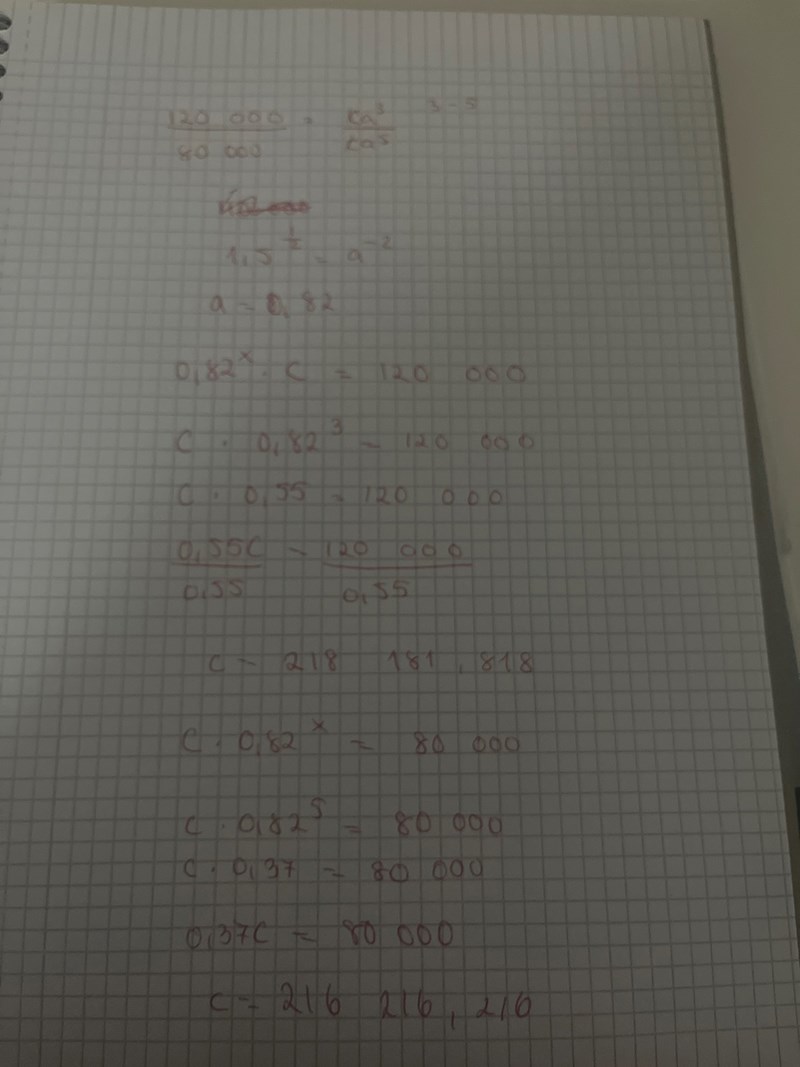 120 000 = Ca³ 3-5
80 000 Ca⁵
1,5^½ = a⁻²
a = 0,82
0,82ˣ · C = 120 000
C · 0,82³ = 120 000
C · 0,55 = 120 000
0,55C = 120 000
0,55 0,55
C = 218 181,818
C · 0,82ˣ = 80 000
C · 0,82⁵ = 80 000
C · 0,37 = 80 000
0,37C = 80 000
C = 216 216,216